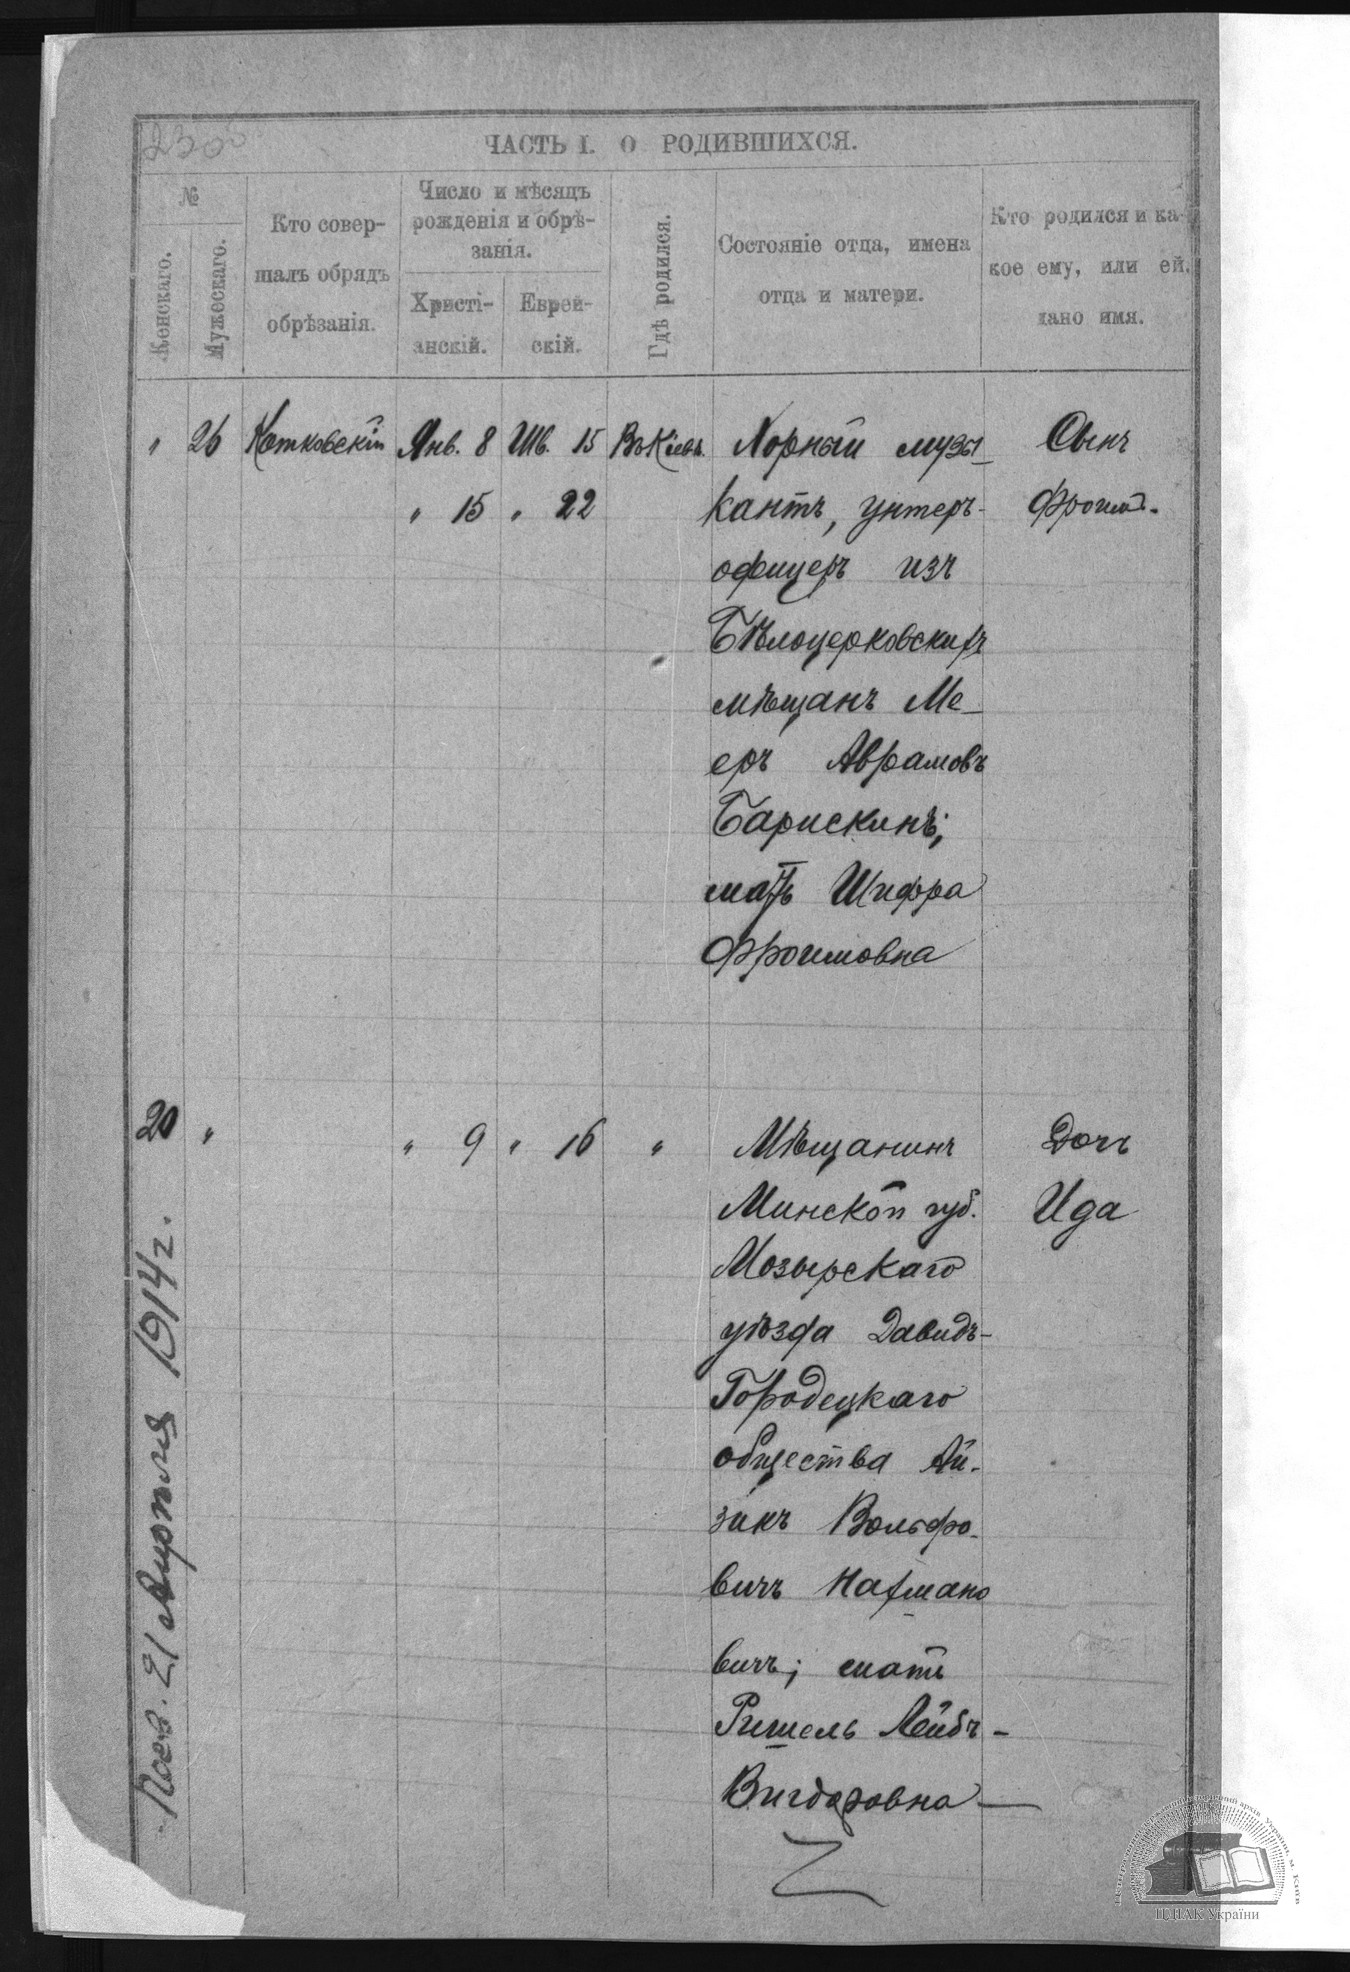 230
ЧАСТЬ I. О РОДИВШИХСЯ.
№
Женскаго.
Мужескаго.
Кто совер-
шалъ обрядъ
обрѣзанія.
Число и мѣсяцъ
рожденія и обрѣ-
занія.
Христі-
анскій.
Еврей-
скій.
Гдѣ родился.
Состояніе отца, имена
отца и матери.
Кто родился и ка-
кое ему, или ей,
дано имя.
" 26 Котковскій Янв. 8 Шв. 15 Въ Кіевѣ. Хорный музы-
Сынъ
" 15 " 22 кантъ, унтеръ-
Фроимъ.
офицеръ изъ
Бѣлоцерковскихъ
мѣщанъ Ме-
еръ Аврамовъ
Барискинъ;
мать Шифра
Фроимовна
20 " " 9 " 16 " Мѣщанинъ Дочь
Минской губ. Ида
Мозырскаго
уѣзда Давидъ-
Городецкаго
общества Ай-
зикъ Вольфо-
вичъ Нахмано
вичъ; мать
Ришель Лейбъ-
Вигдоровна
21 Апрѣля 1914 г.
ЦДІАК України